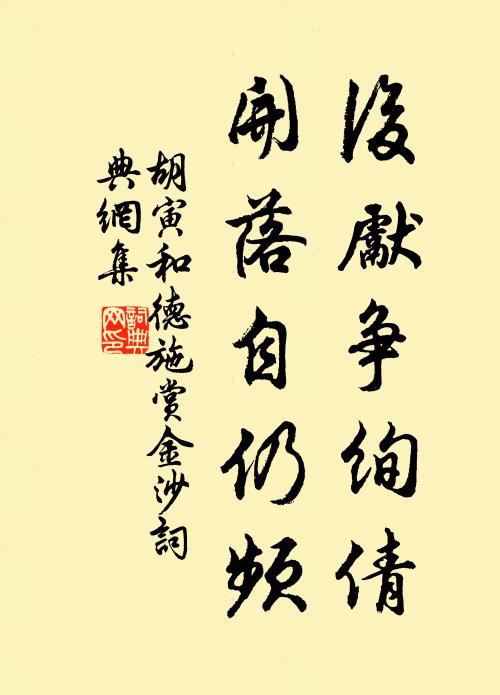 後獻爭絢倩
開落自仍頻
胡寅和德施賞金沙詞
典網集
詞典
网印